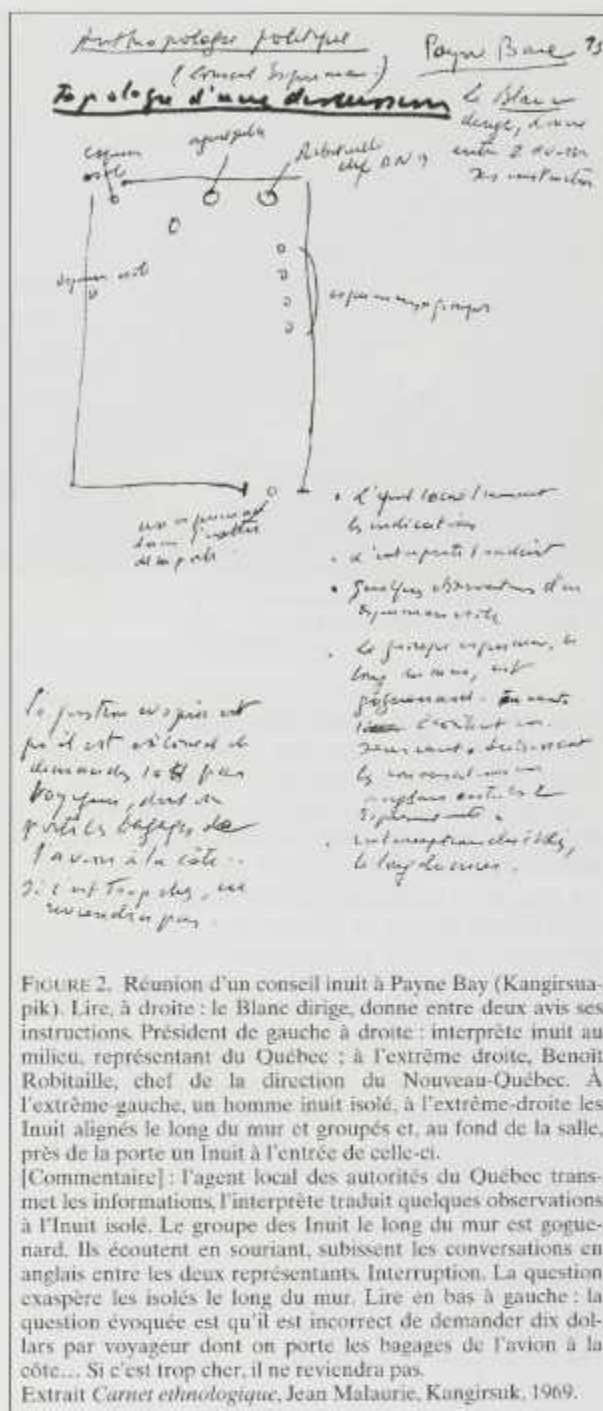 Anthropologie politique
(Conseil Esquimau)
Payne Base
Topologie d'une discussion
Le Blanc
dirige, donne
entre 2 avis ses
instructions
esquimau
isolé
agent
Robitaille
chef DN
esquimau isolé
esquimaux groupés
un esquimau
dans
de porte
• L'agent local transmet
les indications
• L'interprète traduit
• Quelques observations d'un
Esquimau isolé
• Le groupe esquimau, le
long du mur, est
goguenard.
écoutent en
souriant, subissent
les conversations en
anglais entre les 2
représentants.
• interruption
le long du mur.
La question évoquée est
qu'il est incorrect de
demander 10$ par
voyageur, dont on
porte les bagages de
l'avion à la côte..
Si c'est trop cher, ne
reviendra pas.
FIGURE 2. Réunion d'un conseil inuit à Payne Bay (Kangirsua-
pik). Lire, à droite : le Blanc dirige, donne entre deux avis ses
instructions. Président de gauche à droite : interprète inuit au
milieu, représentant du Québec ; à l'extrême droite, Benoît
Robitaille, chef de la direction du Nouveau-Québec. À
l'extrême gauche, un homme inuit isolé, à l'extrême-droite les
Inuit alignés le long du mur et groupés et, au fond de la salle,
près de la porte un Inuit à l'entrée de celle-ci.
[Commentaire] : l'agent local des autorités du Québec trans-
met les informations, l'interprète traduit quelques observations
à l'Inuit isolé. Le groupe des Inuit le long du mur est gogue-
nard. Ils écoutent en souriant, subissent les conversations en
anglais entre les deux représentants. Interruption. La question
exaspère les isolés le long du mur. Lire en bas à gauche : la
question évoquée est qu'il est incorrect de demander dix dol-
lars par voyageur dont on porte les bagages de l'avion à la
côte... Si c'est trop cher, il ne reviendra pas.
Extrait Carnet ethnologique, Jean Malaurie, Kangirsuk, 1969.